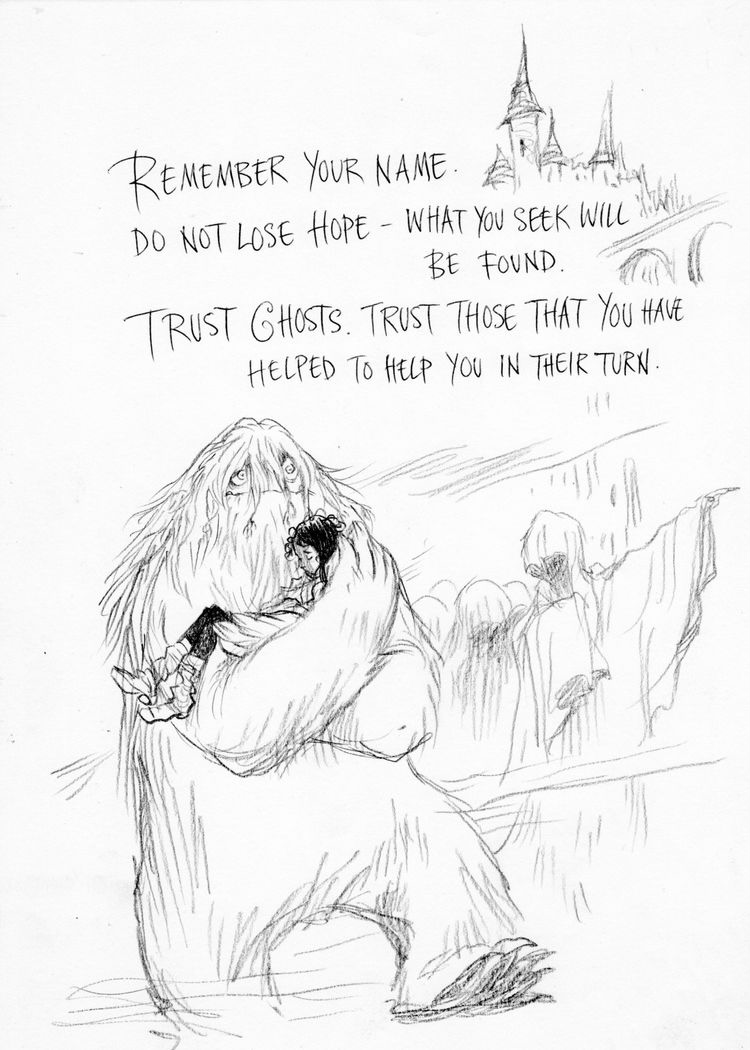 REMEMBER YOUR NAME.
DO NOT LOSE HOPE – WHAT YOU SEEK WILL
BE FOUND.
TRUST GHOSTS. TRUST THOSE THAT YOU HAVE
HELPED TO HELP YOU IN THEIR TURN.